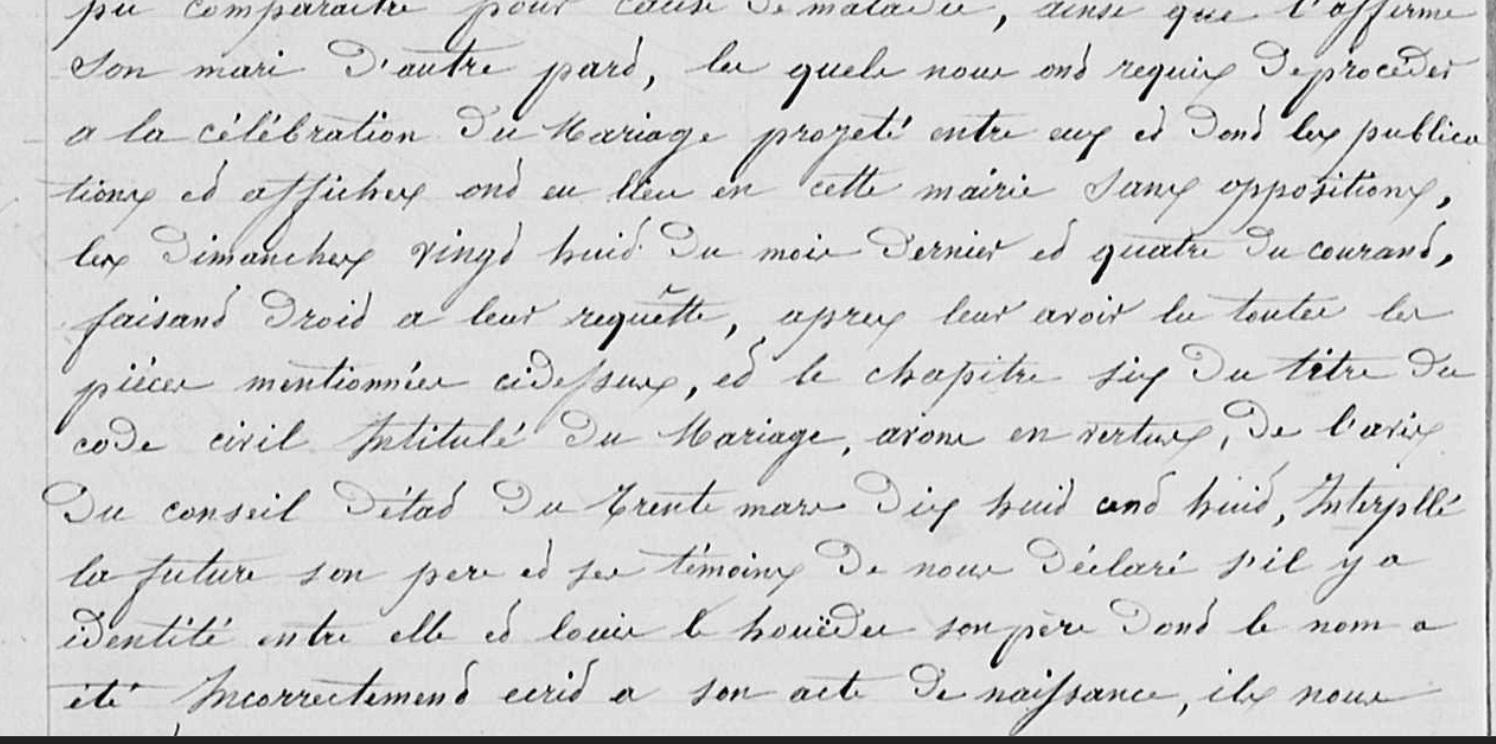 pu comparaitre pour cause de maladie, ainsi que l'affirme
son mari d'autre part, les quels nous ont requis de procéder
a la célébration du Mariage projeté entre eux et dont les publica
tions et affiches ont eu lieu en cette mairie sans oppositions,
les dimanches vingt huit du mois dernier et quatre du courant,
faisant droit a leur requêtte, apres leur avoir lu toutes les
piéces mentionnées cidessus, et le chapitre six du titre du
code civil Intitulé du Mariage, avons en vertus, de l'avis
du conseil d'état du trente mars dix huit cent huit, Interpllé
la future son pere et ses témoins de nous déclaré s'il y a
identité entre elle et louis le houëdec son père dont le nom a
été Incorrectement ecrit a son acte de naissance, ils nous